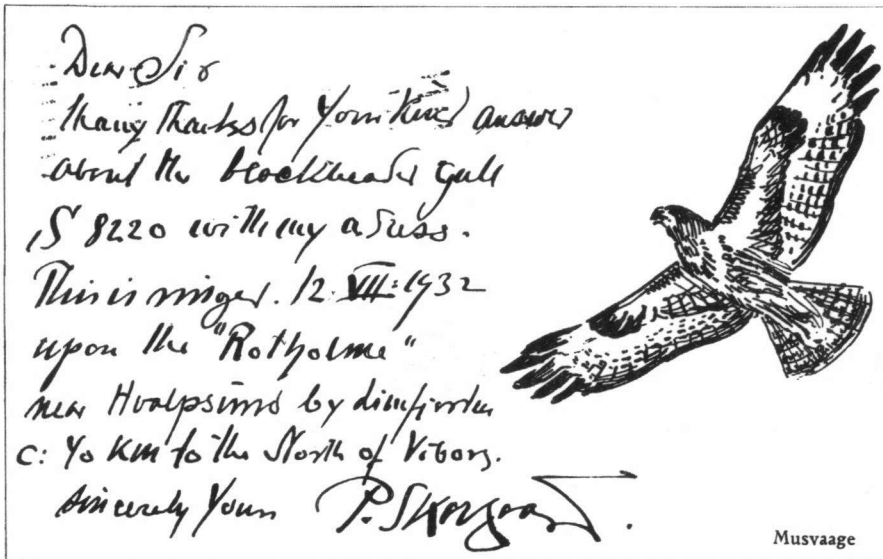 Dear Sir
Many Thanks for Your Kind answer
about the blackheaded gull
S 8220 with my adress.
This is ringed. 12. VII. 1932
upon the "Rotholme"
near Hvalpsund by Limfjorden
C: 40 Km to the North of Viborg.
Sincerely Yours P. Skovgaard.
Musvaage